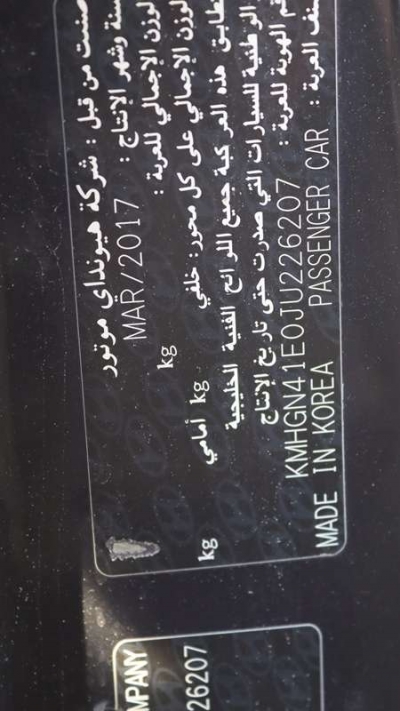 صنعت من قبل : شركة هيونداي موتور
سنة وشهر الإنتاج : MAR/2017
الوزن الإجمالي للعربة : kg
الوزن الإجمالي على كل محور: خلفي kg أمامي kg
تطابق هذه المركبة جميع اللوائح الفنية الخليجية
الوطنية للسيارات التي صدرت حتى تاريخ الإنتاج
رقم الهوية للعربة : KMHGN41E0JU226207
صنف العربة : PASSENGER CAR MADE IN KOREA
MPANY
26207